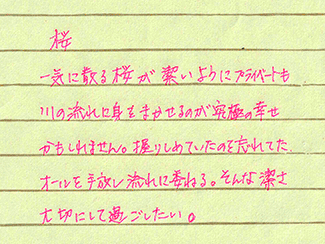 桜
一気に散る桜が潔いようにプライベートも
川の流れに身をまかせるのが究極の幸せ
かもしれません。握りしめていたのを忘れてた
オールを手放し流れに委ねる。そんな潔さ
大切にして過ごしたい。